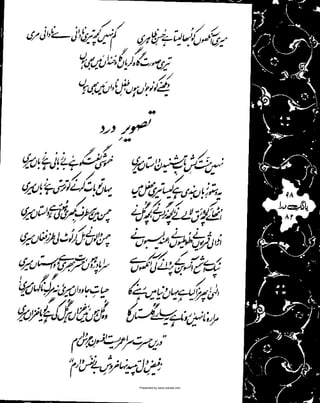 میری آنکھوں کو لبھا لیتا ہے حسنِ ظاہری کم نہیں کچھ تیری نادانی سے نادانی مری
تیری صورت گاہ گریاں گاہ خنداں میں بھی ہوں
دیکھنے کو نوجواں ہوں، طفلِ ناداں میں بھی ہوں
تصویرِ درد
نہیں منّت کشِ تابِ شنیدن داستاں میری خموشی گفتگو ہے، بے زبانی ہے زباں میری
یہ دستورِ زباں بندی ہے کیسا تیری محفل میں یہاں تو بات کرنے کو ترستی ہے زباں میری
اُٹھائے کچھ ورق لالے نے، کچھ نرگس نے، کچھ گل نے چمن میں ہر طرف بکھری ہوئی ہے داستاں میری
اُڑالی قُمریوں نے، طُوطیوں نے، عندلیبوں نے چمن والوں نے مل کر لُوٹ لی طرزِ فغاں میری
ٹپک اے شمع آنسو بن کے پروانے کی آنکھوں سے سراپا درد ہوں، حسرت بھری ہے داستاں میری
الٰہی! پھر مزا کیا ہے یہاں دنیا میں رہنے کا حیاتِ جاوداں میری، نہ مرگِ ناگہاں میری!
مرا رونا نہیں، رونا ہے یہ سارے گلستاں کا وہ گل ہوں میں، خزاں ہر گل کی ہے گویا خزاں میری
"دریں حسرت سرا عمریست افسونِ جرس دارم
ز فیضِ دل تپیدنہا خروشِ بے نفس دارم"
بانگِ درا
۸۴